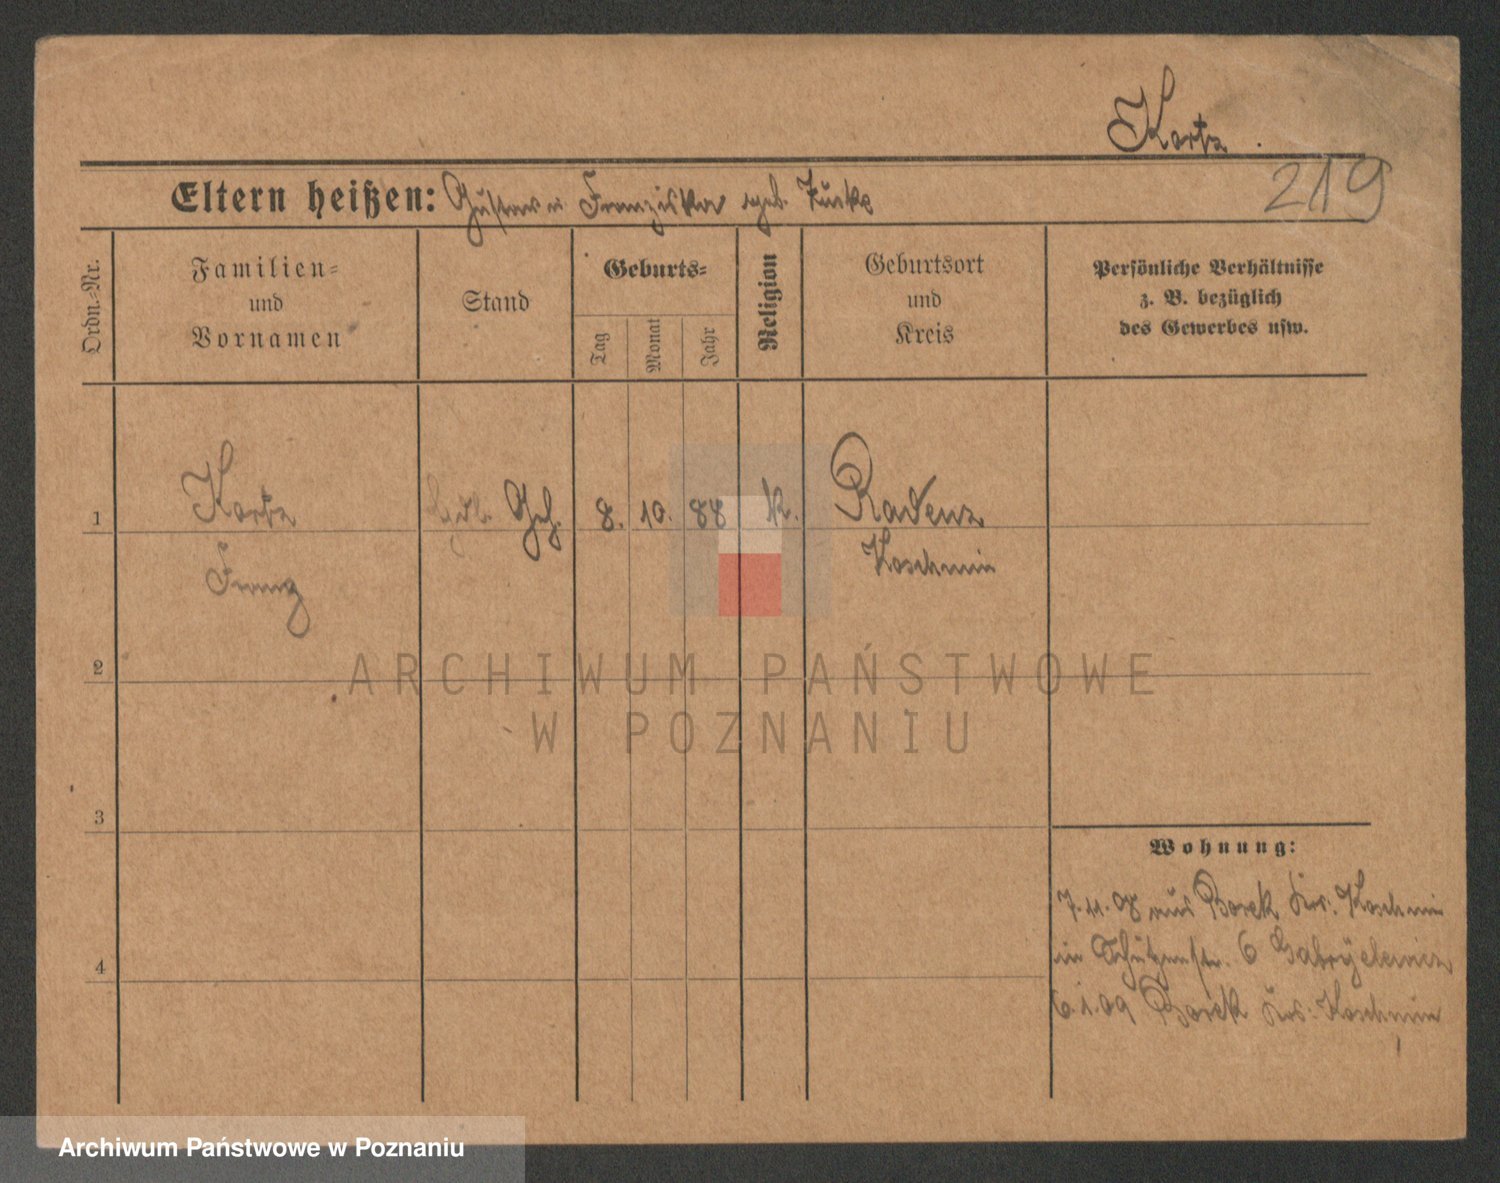 Kortz.
219
Eltern heißen: Gustav u Franziska geb.
Ordn.=Nr.
Familien=
und
Vornamen
Stand
Geburts=
Tag
Monat
Jahr
Religion
Geburtsort
und
Kreis
Persönliche Verhältnisse
z. B. bezüglich
des Gewerbes usw.
1
Kortz
Geh. 8. 10. 88 K. Radenz
Franz
Koschmin
2
ARCHIWUM PAŃSTWOWE
W POZNANIU
3
Wohnung:
7.11.08 aus Borek Krs. Koschmin
in Schützenstr. 6 Gabryelewicz
4
6.1.09 Borek Krs: Koschmin
Archiwum Państwowe w Poznaniu